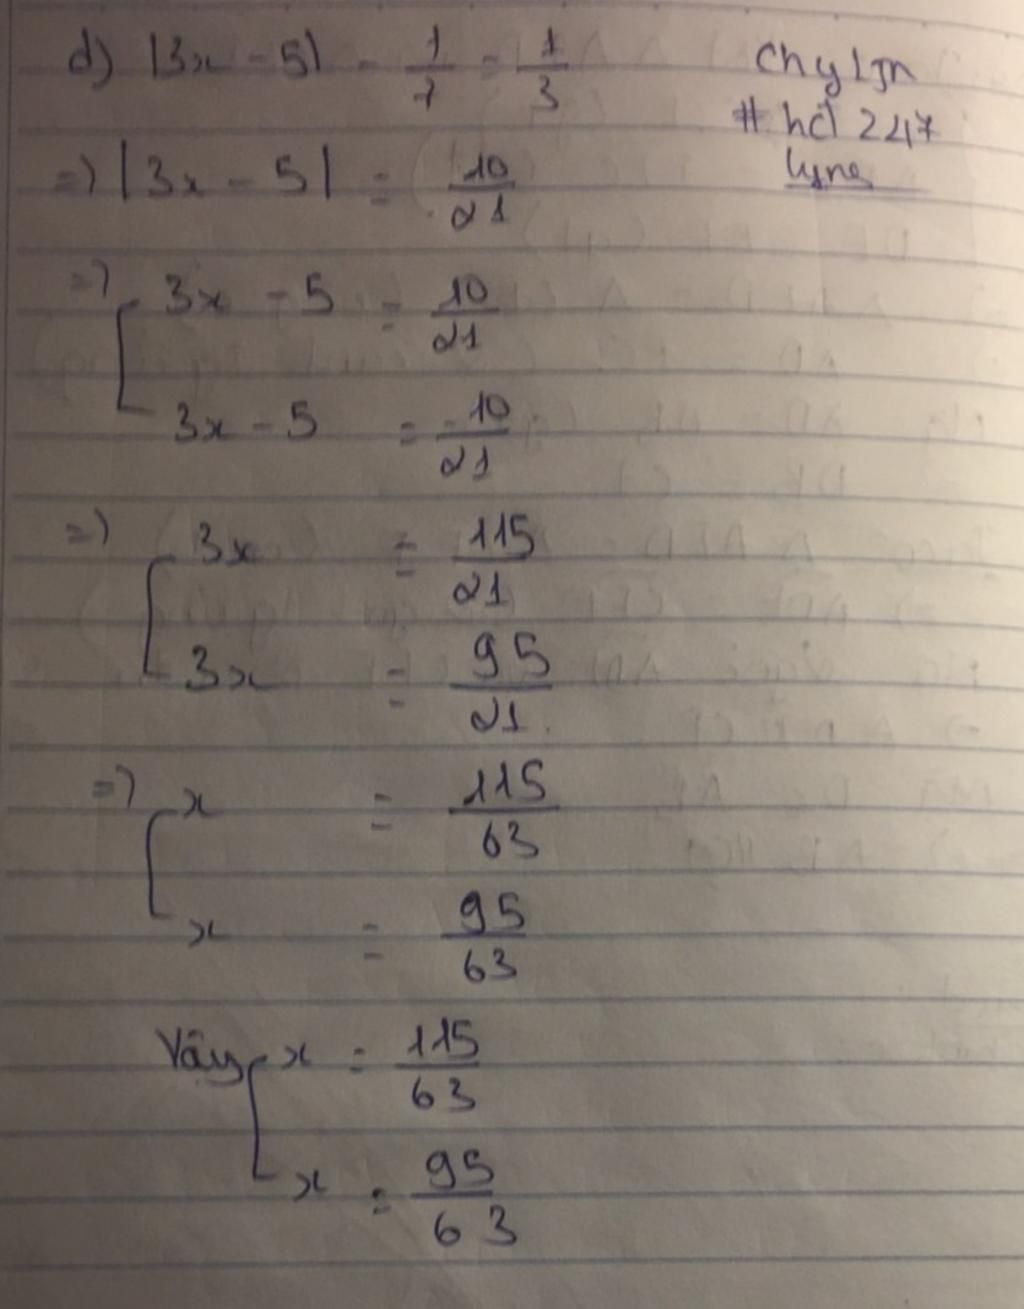 d) |3x - 5| - 1/7 = 1/3
=> |3x - 5| = 10/21
=> [ 3x - 5 = 10/21
3x - 5 = -10/21
=> [ 3x = 115/21
3x = 95/21
=> [ x = 115/63
x = 95/63
Vậy [ x = 115/63
x = 95/63
# hd 247